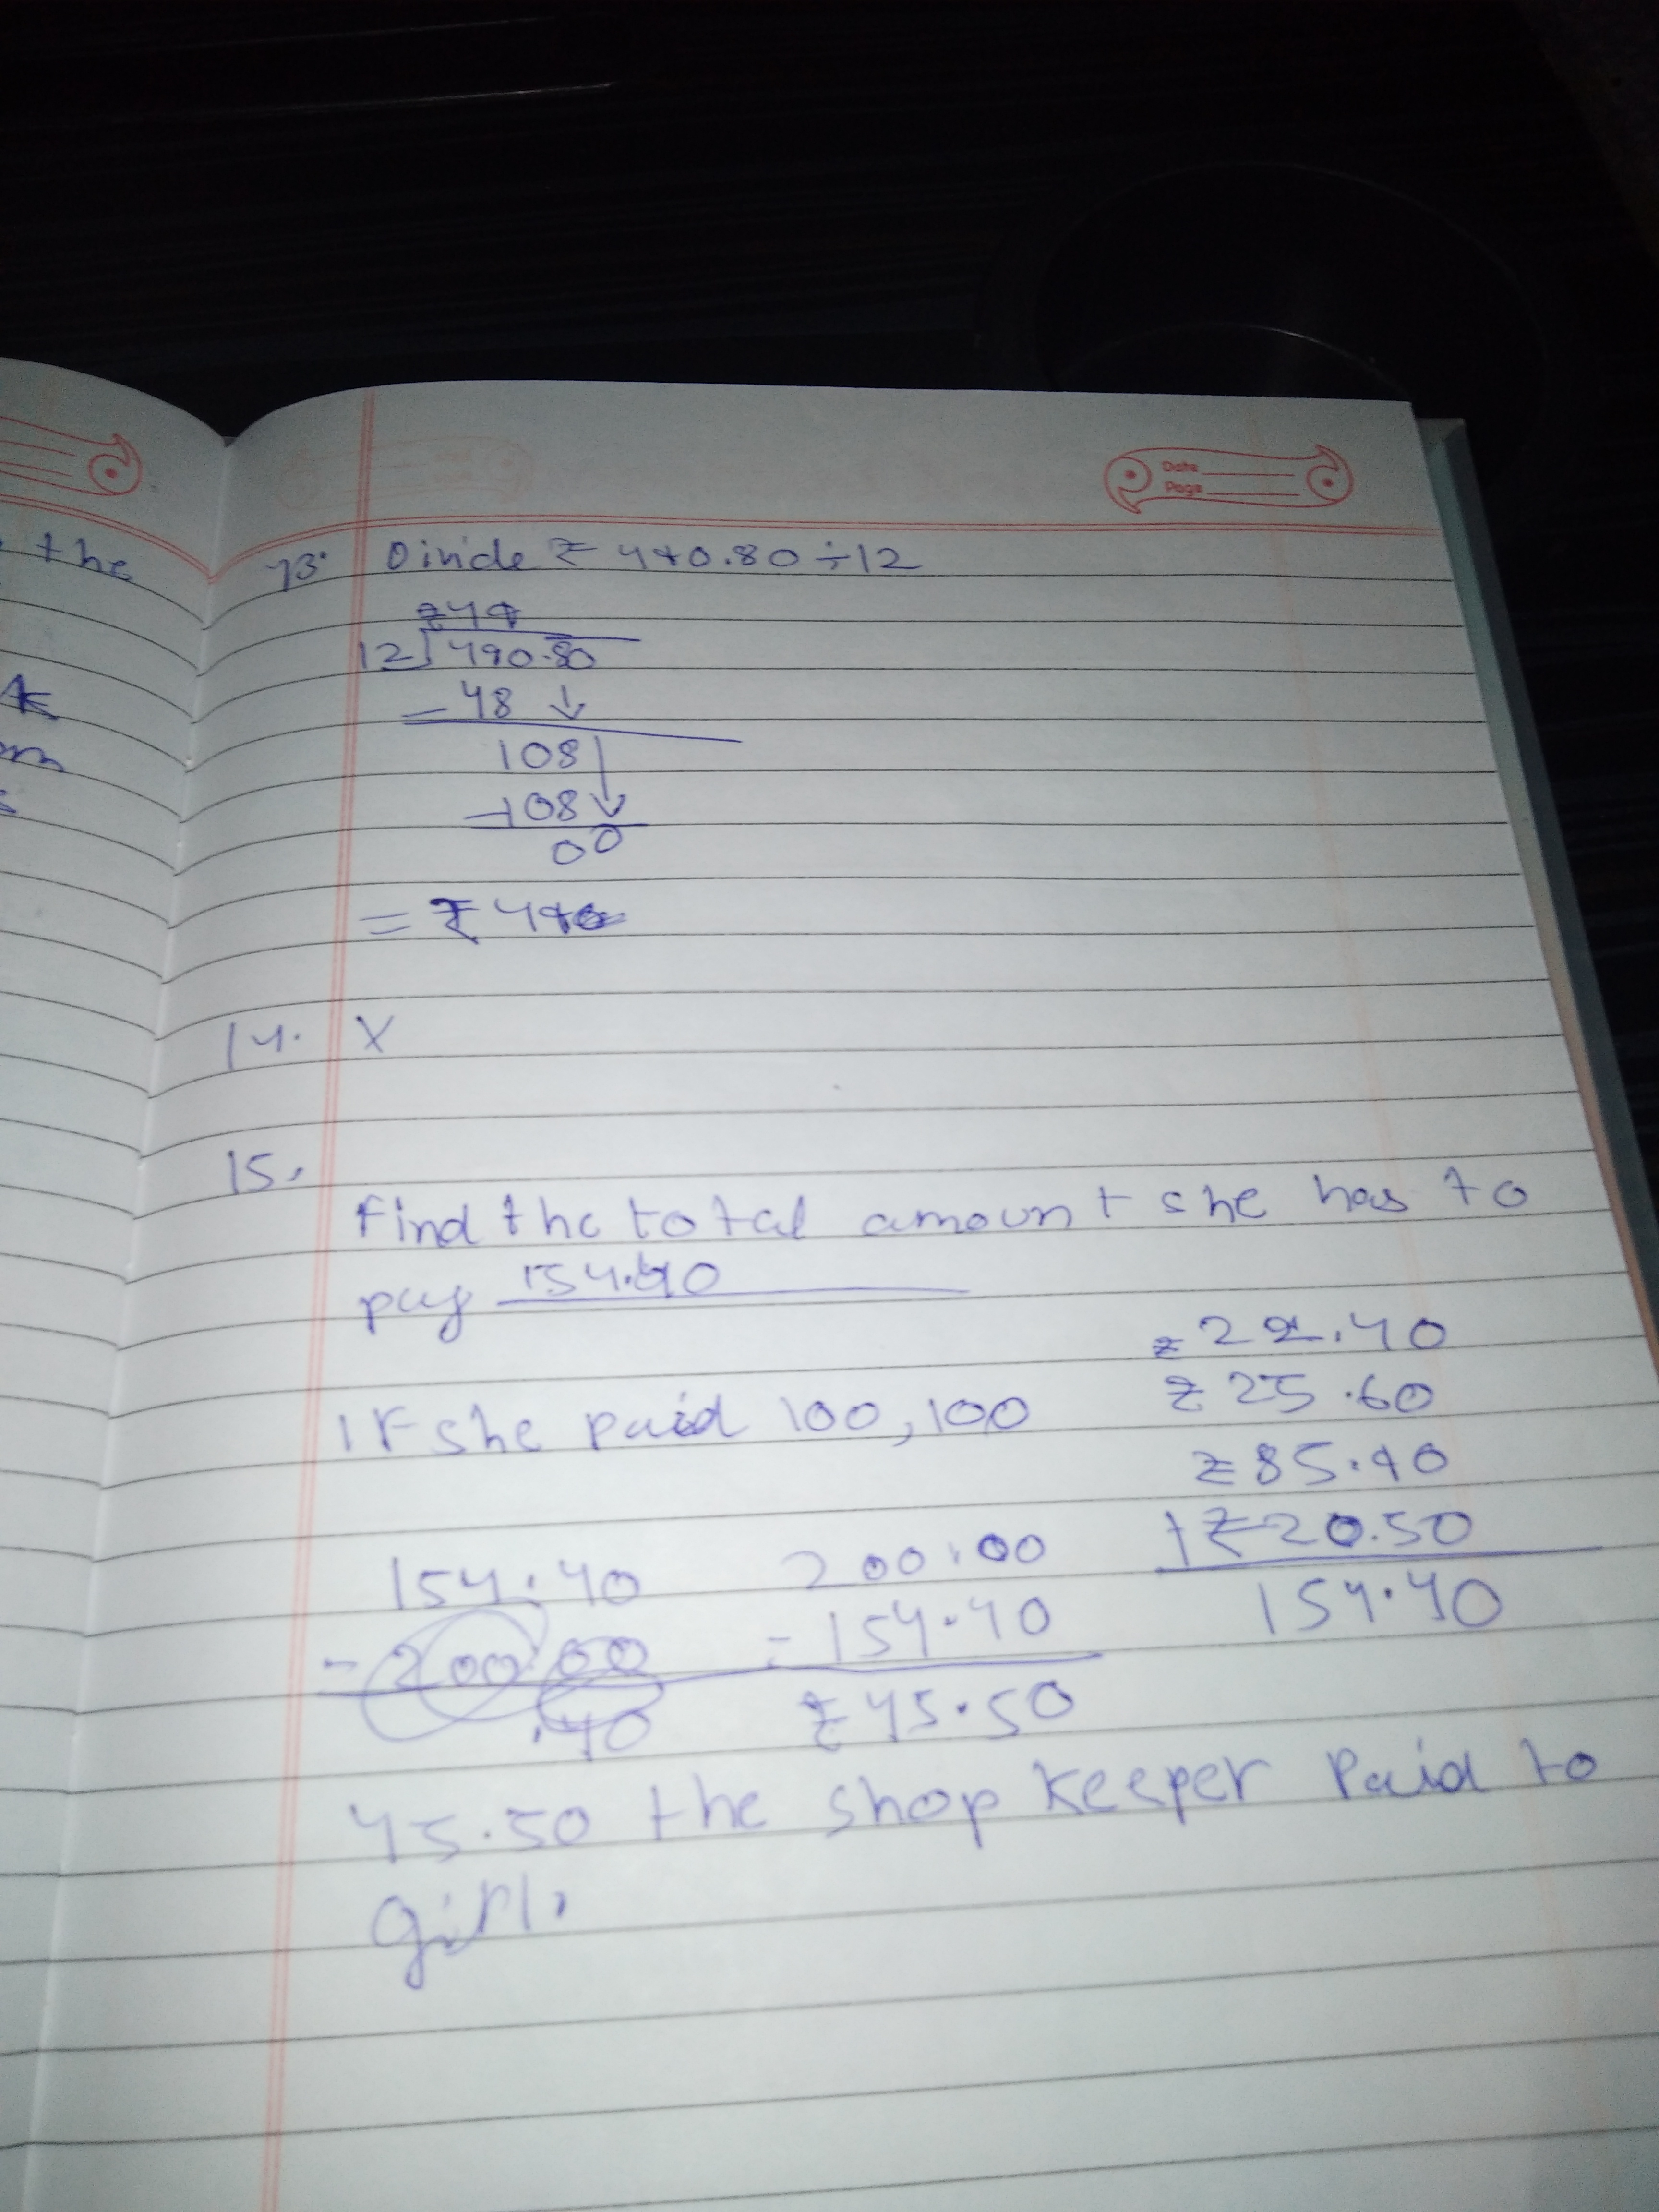 Date
Page
the
13. Divide ₹ 490.80 ÷ 12
₹ 49
12 490.80
- 48
108
- 108
00
= ₹
14. X
15.
Find the total amount she has to
pay 154.40
₹ 22.40
₹ 25.60
If she paid 100, 100
₹ 85.90
+ ₹ 20.50
154.40 200.00
154.40
- 200.00 - 154.40
.40 ₹ 45.50
45.50 the shop keeper Paid to
girl.